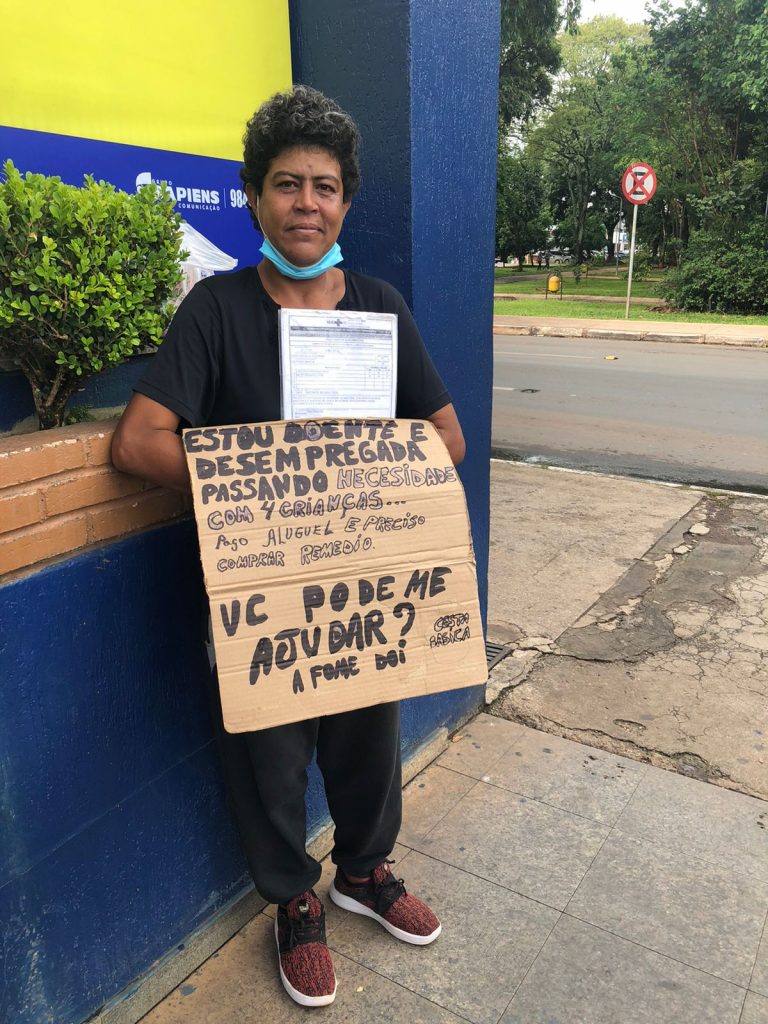 GRUPO
SAPIENS
COMUNICAÇÃO
984
ESTOU DOENTE E
DESEMPREGADA
PASSANDO NECESIDADE
COM 4 CRIANÇAS...
PAGO ALUGUEL E PRECISO
COMPRAR REMEDIO.
VC PODE ME
AJUDAR?
A FOME DOI
CESTA
BASICA